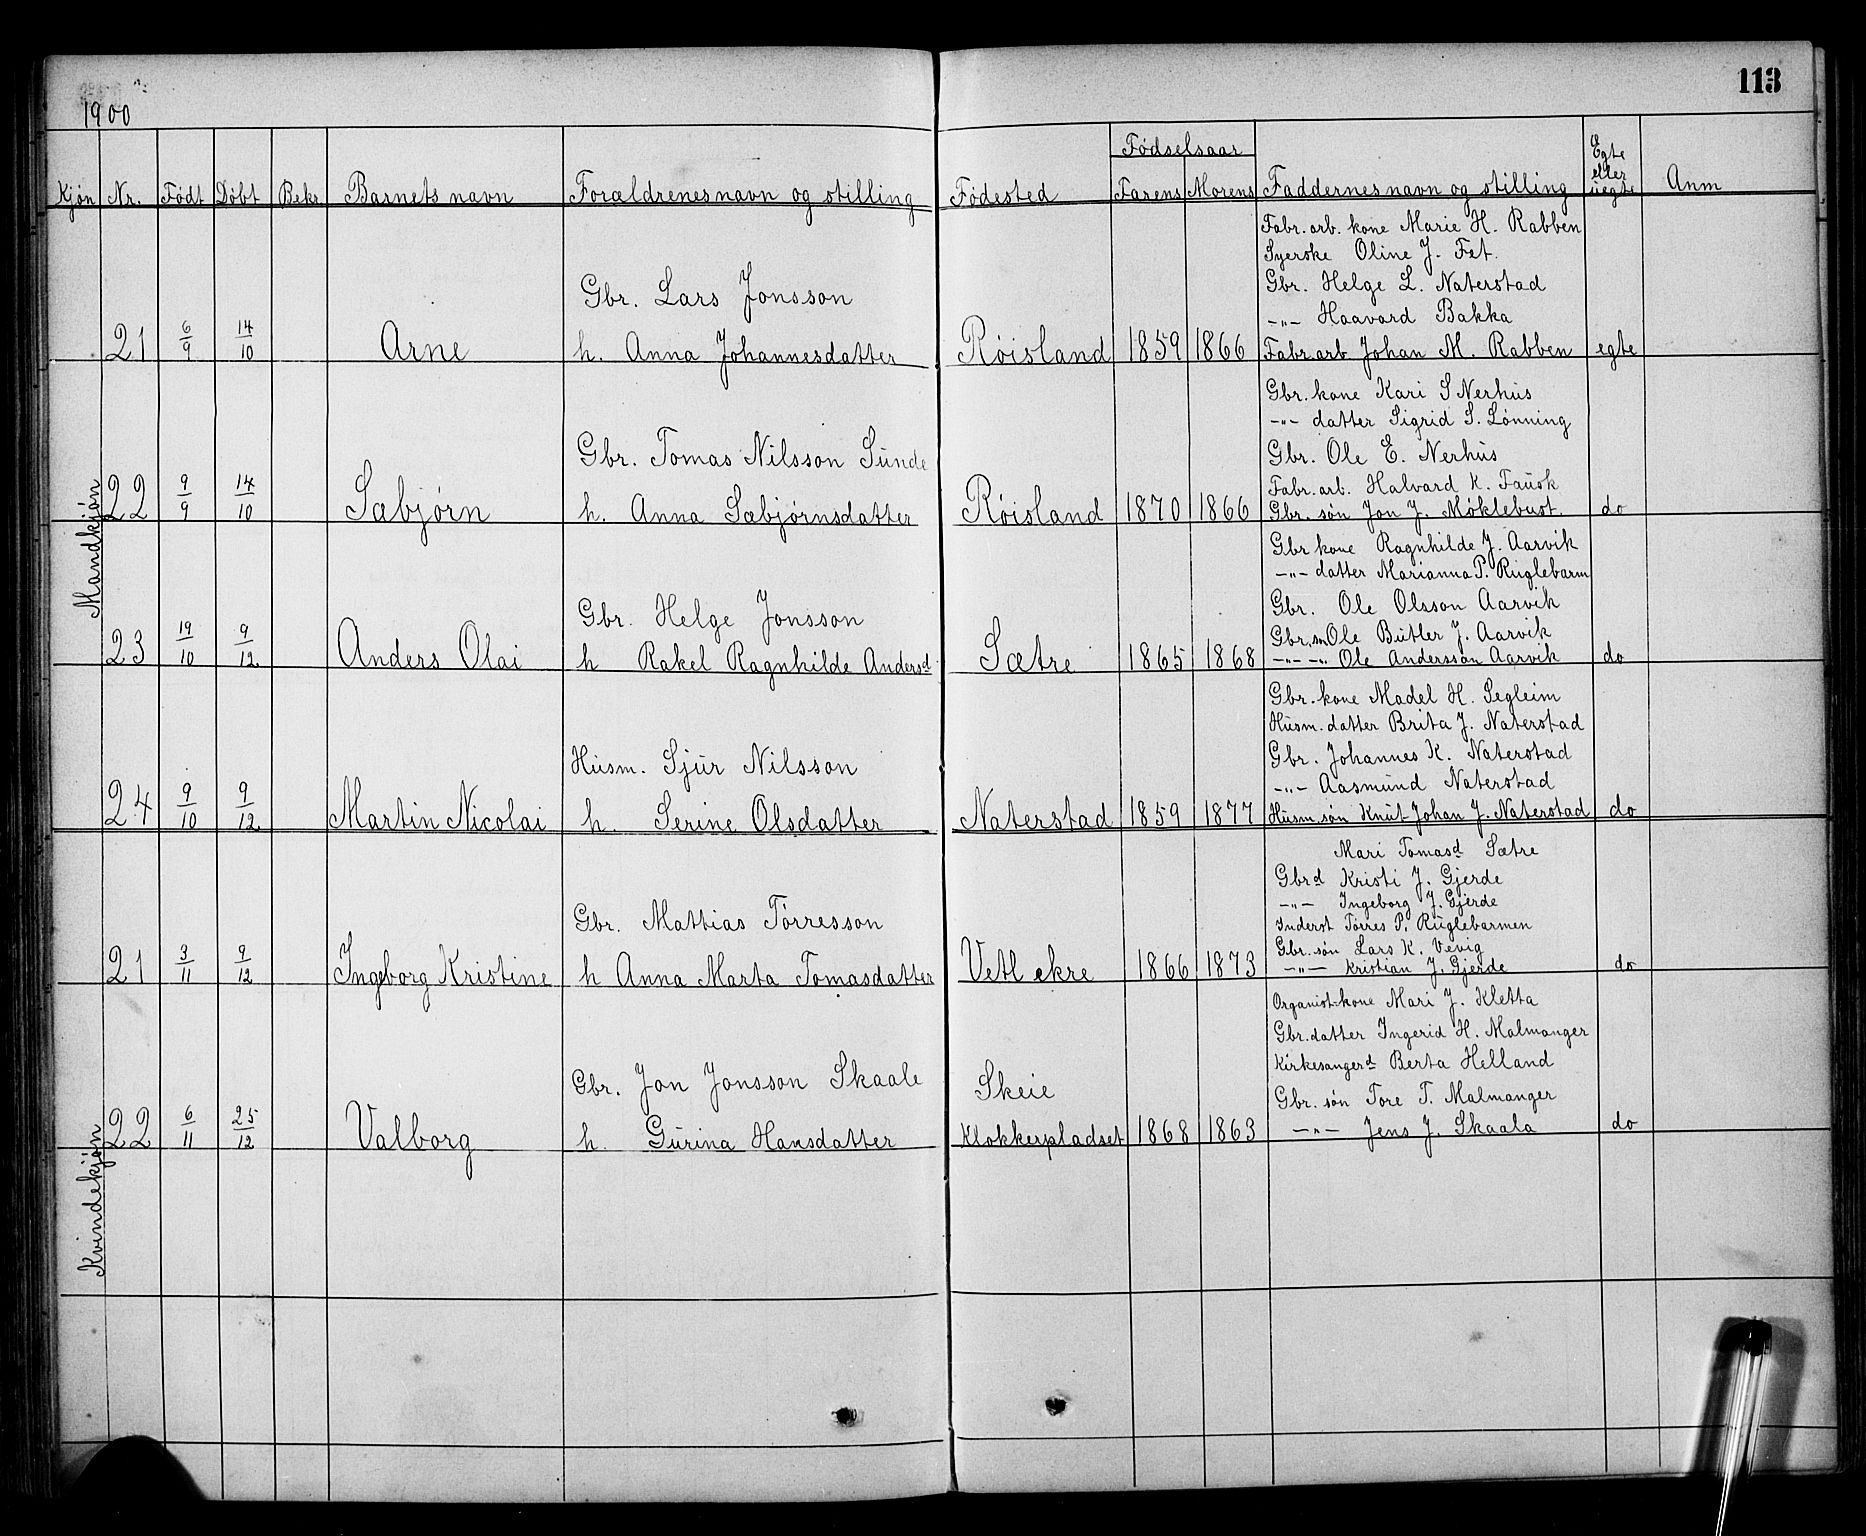 1900
113
Kjøn Nr. Født Døbt Bekr. Barnets navn Forældrenes navn og stilling Fødested Fødselsaar Farens Morens Faddernes navn og stilling Egte eller uegte Anm
Mandkjøn
21 6/9 14/10 Arne
Gbr. Lars Jonsson
h. Anna Johannesdatter
Røisland 1859 1866
Fabr. arb. kone Marie H. Rabben
Syerske Oline J. Fet.
Gbr. Helge L. Naterstad
-"- Haavard Bakka
Fabr. arb Johan M. Rabben
egte
22 9/9 14/10 Sæbjørn
Gbr. Tomas Nilsson Sunde
h. Anna Sæbjørnsdatter
Røisland 1870 1866
Gbr. kone Kari S Nerhus
-"- datter Sigrid S. Lønning
Gbr. Ole E. Nerhus
Fabr. arb. Halvard K. Fausk
Gbr. søn Jon J. Møklebust.
do
23 19/10 9/12 Anders Olai
Gbr. Helge Jonsson
h Rakel Ragnhilde Andersd
Sætre 1865 1868
Gbr kone Ragnhilde J. Aarvik
-"- datter Marianna P. Ruglebarm
Gbr. Ole Olsson Aarvik
Gbr. sn Ole Butler J. Aarvik
-"- -"- Ole Andersson Aarvik
do
24 9/10 9/12 Martin Nicolai
Husm. Sjur Nilsson
h. Serine Olsdatter
Naterstad 1859 1877
Gbr. kone Madel H. Segleim
Husm. datter Brita J. Naterstad
Gbr. Johannes K. Naterstad
-"- Aasmund Naterstad
Husm. søn Knut Johan J. Naterstad
do
Kvindekjøn
21 3/11 9/12 Ingeborg Kristine
Gbr. Mattias Tørresson
h Anna Marta Tomasdatter
Vetl ekre 1866 1873
Mari Tomasd Sætre
Gbrd Kristi J. Gjerde
-"- Ingeborg J. Gjerde
Inderst Tørres P. Ruglebarmen
Gbr. søn Lars K. Vevig
-"- Kristian J. Gjerde
do
22 6/11 25/12 Valborg
Gbr. Jon Jonsson Skaale
h. Gurina Hansdatter
Skeie
Klokkerpladset 1868 1863
Organist-kone Mari J. Kletta
Gbr. datter Ingerid H. Malmanger
Kirkesangerd Berta Helland
Gbr. søn Tore T. Malmanger
-"- Jens J. Skaala
do